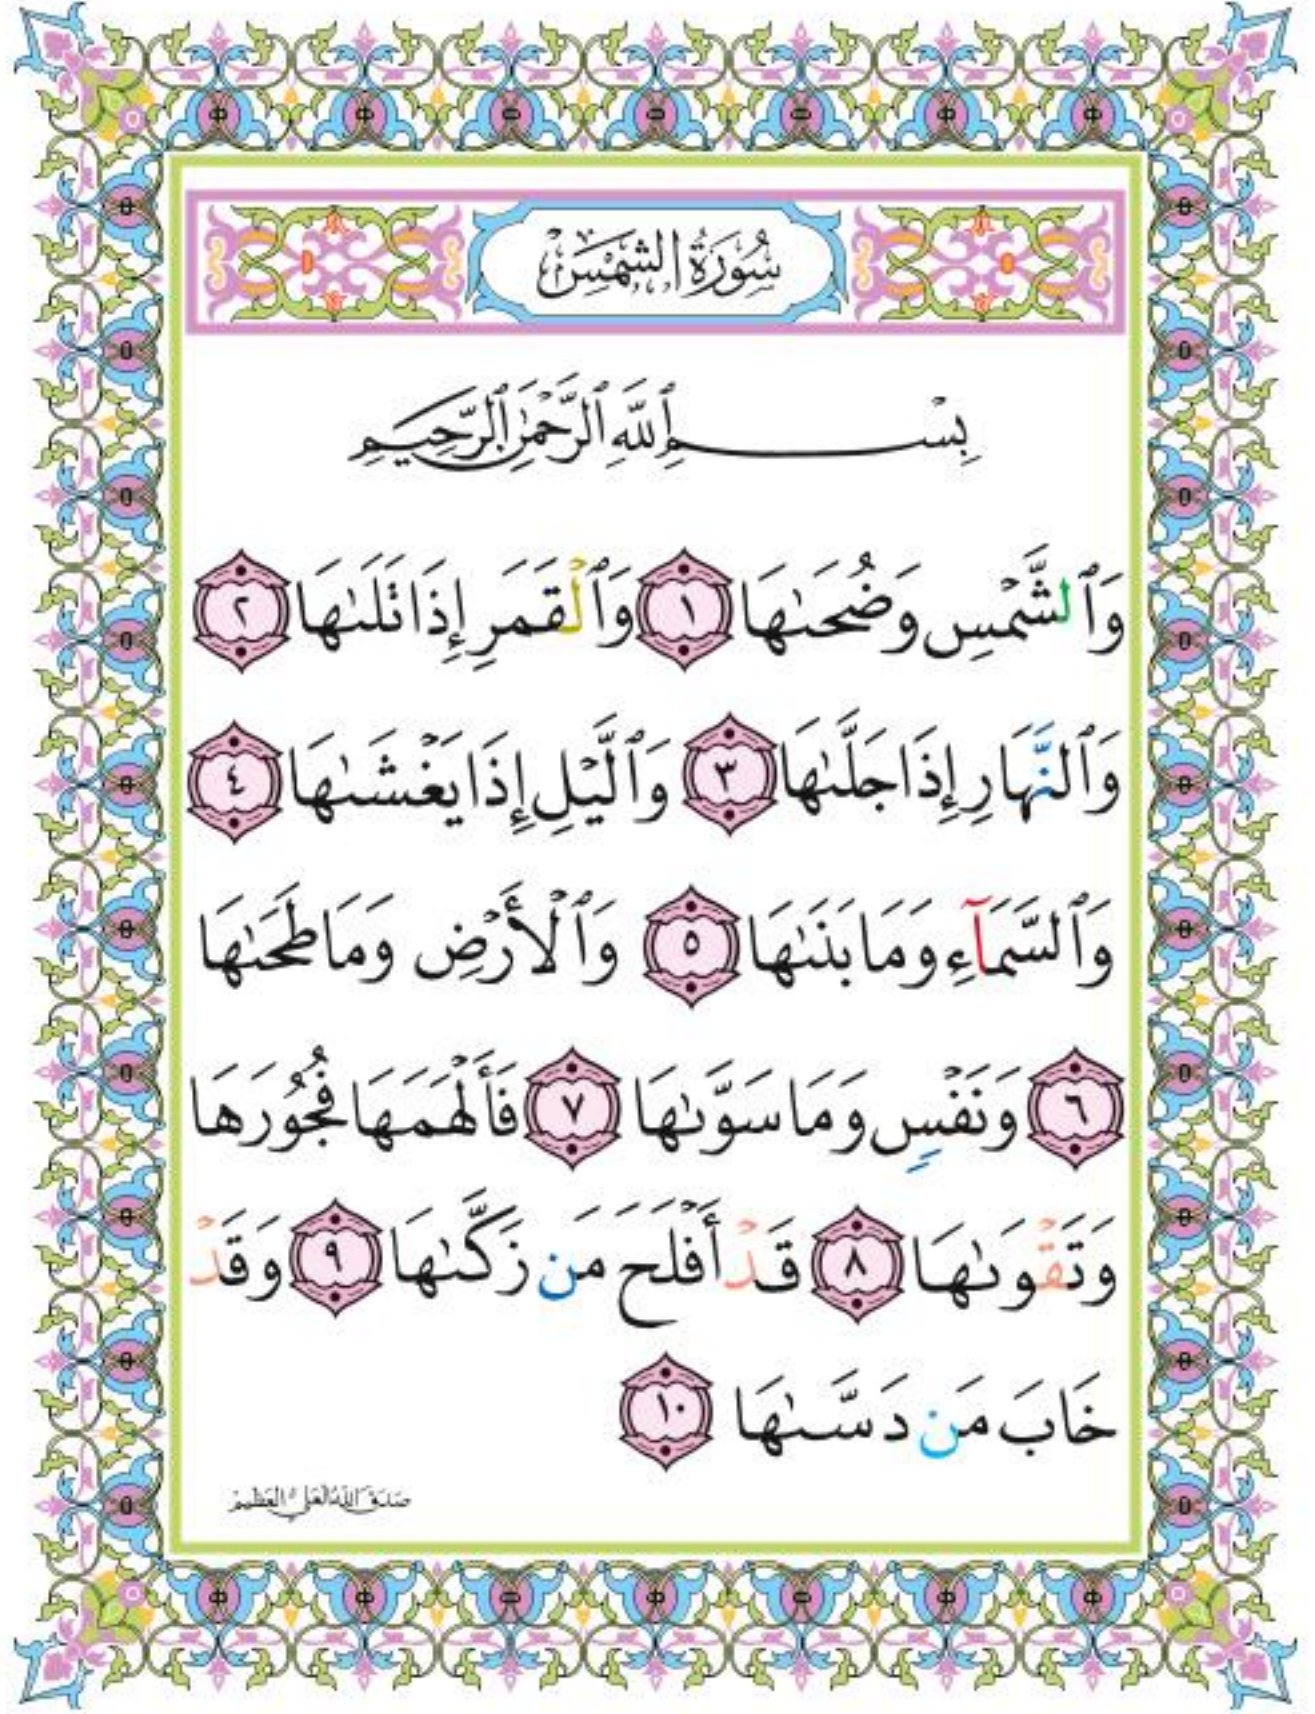 سُورَةُ الشَّمْسِ
بِسْمِ ٱللَّهِ ٱلرَّحْمَٰنِ ٱلرَّحِيمِ
وَٱلشَّمْسِ وَضُحَىٰهَا ١ وَٱلْقَمَرِ إِذَا تَلَىٰهَا ٢
وَٱلنَّهَارِ إِذَا جَلَّىٰهَا ٣ وَٱلَّيْلِ إِذَا يَغْشَىٰهَا ٤
وَٱلسَّمَآءِ وَمَا بَنَىٰهَا ٥ وَٱلْأَرْضِ وَمَا طَحَىٰهَا
٦ وَنَفْسٍ وَمَا سَوَّىٰهَا ٧ فَأَلْهَمَهَا فُجُورَهَا
وَتَقْوَىٰهَا ٨ قَدْ أَفْلَحَ مَن زَكَّىٰهَا ٩ وَقَدْ
خَابَ مَن دَسَّىٰهَا ١٠
صَدَقَ اللهُ العَلِيُّ العَظِيمُ